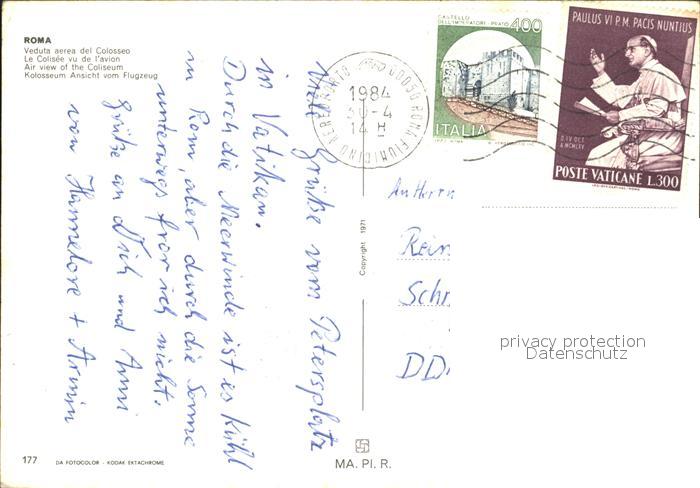 ROMA
Veduta aerea del Colosseo
Le Colisée vu de l'avion
Air view of the Coliseum
Kolosseum Ansicht vom Flugzeug
Viele Grüße vom Petersplatz
in Vatikan.
Durch die Meerwinde ist es kühl
in Rom, aber durch die Sonne
unterwegs fror ich nicht.
Grüße an Dich und Anni
von Hannelore + Armin
177
DA FOTOCOLOR - KODAK EKTACHROME
Copyright 1971
MA. PI. R.
00050 ROMA FIUMICINO AEROPORTO
1984
14 H
CASTELLO
DELL'IMPERATORE - PRATO
400
ITALIA
PAULUS VI P.M. PACIS NUNTIUS
D. IV OCT.
A. MCMLXV
POSTE VATICANE L.300
An Herrn
Rein
Schr
DD
privacy protection
Datenschutz